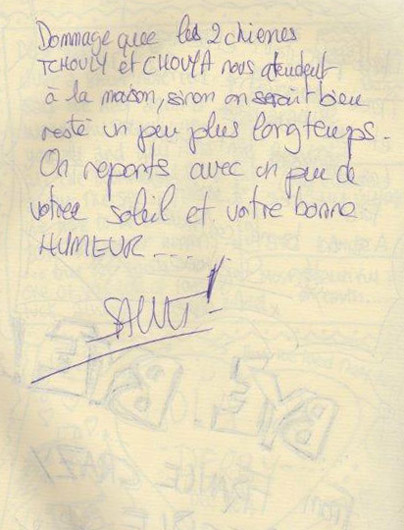 Dommage que les 2 chiens
TCHOULY et CHOUYA nous attendent
à la maison, sinon on serait bien
resté un peu plus longtemps.
On reparts avec un peu de
votre soleil et votre bonne
HUMEUR....
SALUT!
BYE BYE!
CRAZY